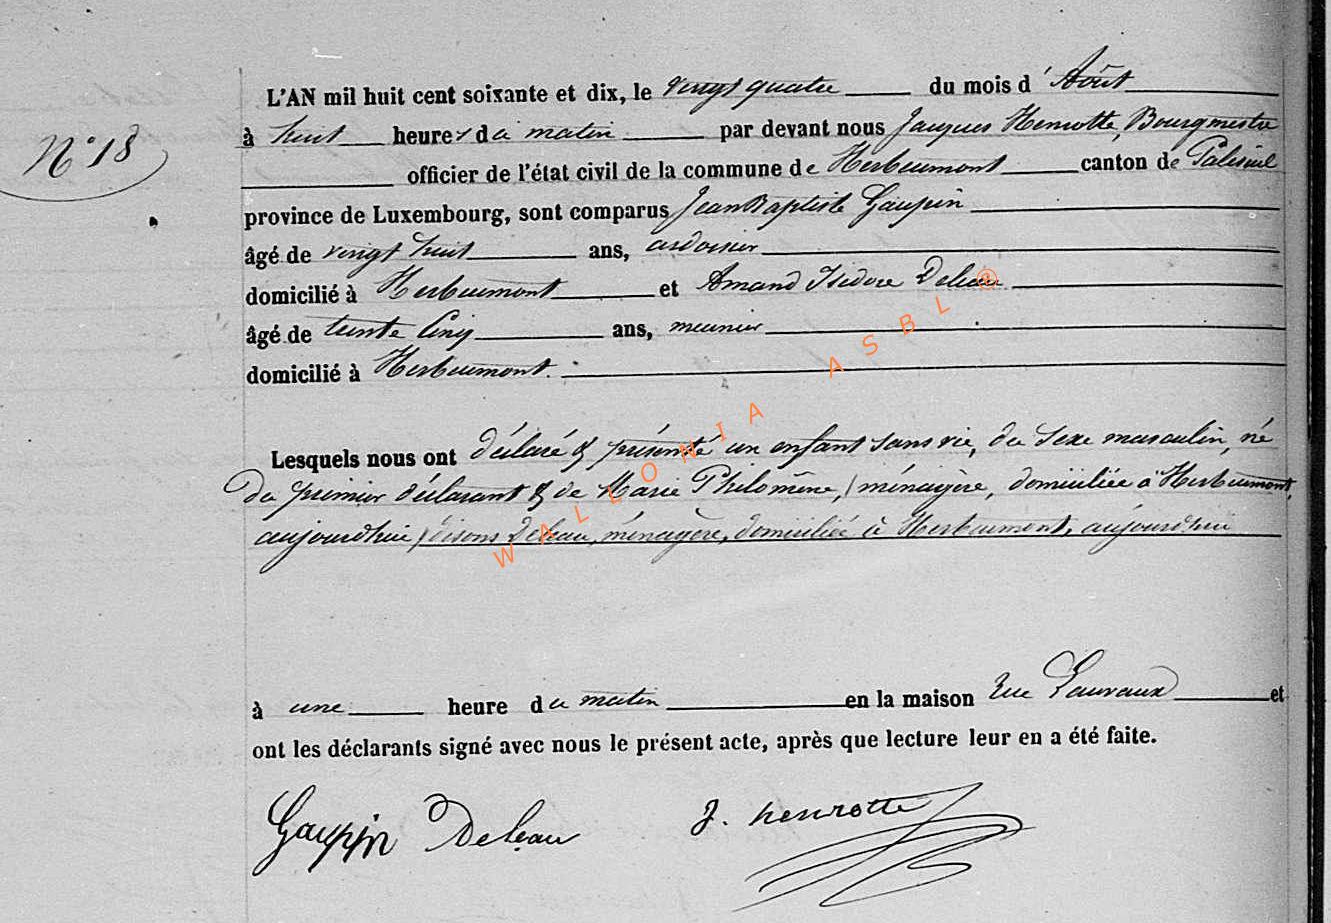 L'AN mil huit cent soixante et dix, le vingt quatre du mois d'Août
N° 18
à huit heures du matin par devant nous Jacques Henrotte, Bourgmestre
officier de l'état civil de la commune de Herbeumont canton de Paliseul
province de Luxembourg, sont comparus Jean Baptiste Gaupin
âgé de vingt huit ans, ardoisier
domicilié à Herbeumont et Amand Isidore Deleau
âgé de trente cinq ans, meunier
domicilié à Herbeumont.
Lesquels nous ont déclaré & présenté un enfant sans vie, du sexe masculin, né
du premier déclarant & de Marie Philomène, / ménagère, domiciliée à Herbeumont,
aujourd'hui / disons Deleau, ménagère, domiciliée à Herbeumont, aujourd'hui
à une heure du matin en la maison rue Lauvaux et
ont les déclarants signé avec nous le présent acte, après que lecture leur en a été faite.
Gaupin Deleau J. Henrotte
WALLONIA ASBL ®